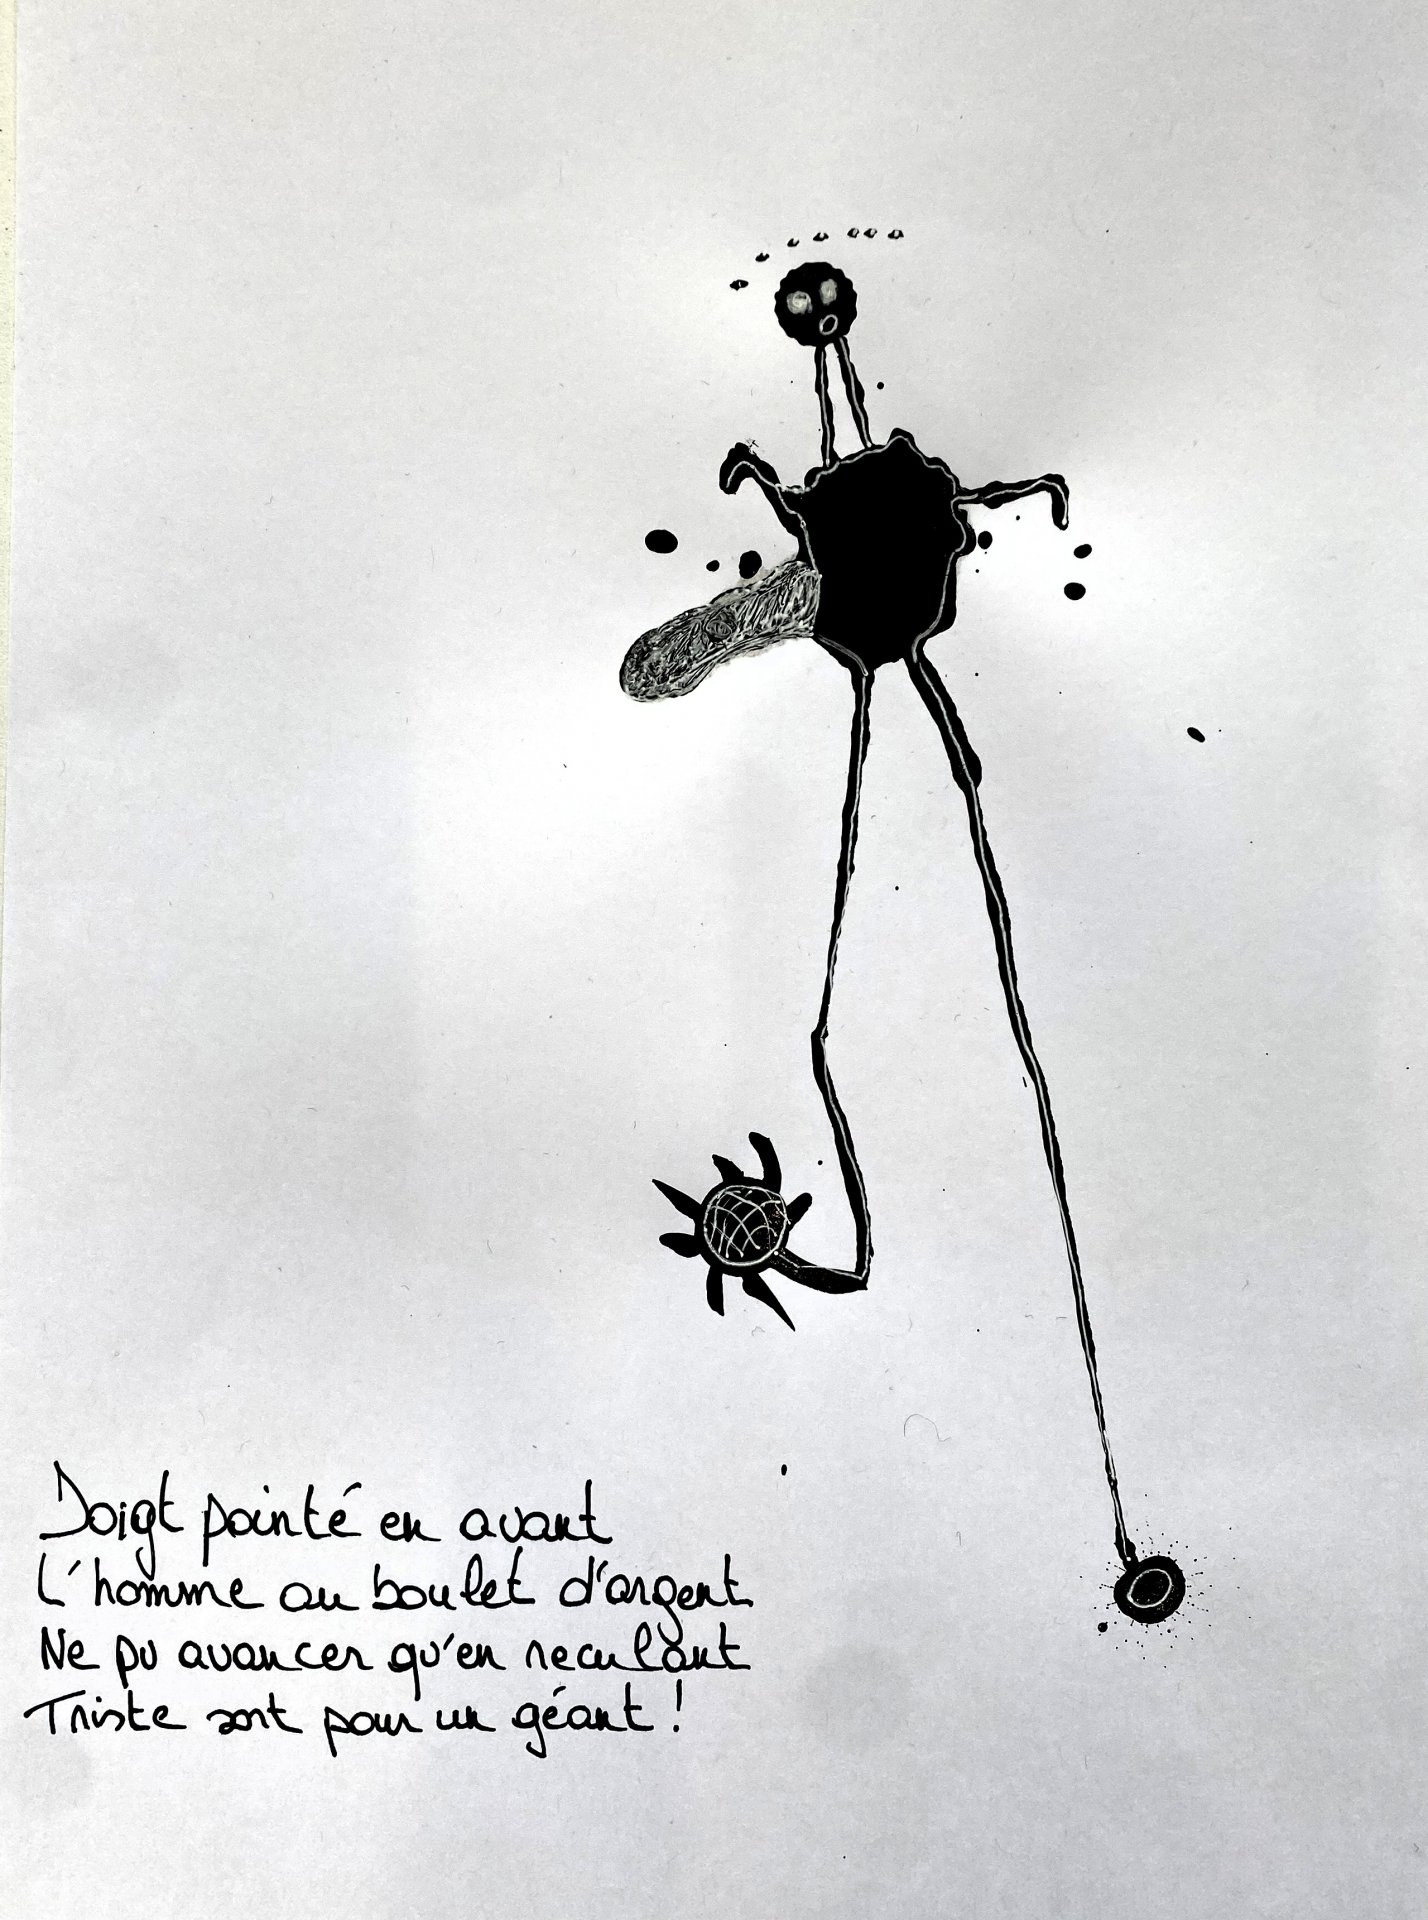 Doigt pointé en avant
L'homme au boulet d'argent
Ne pu avancer qu'en reculant
Triste sort pour un géant !